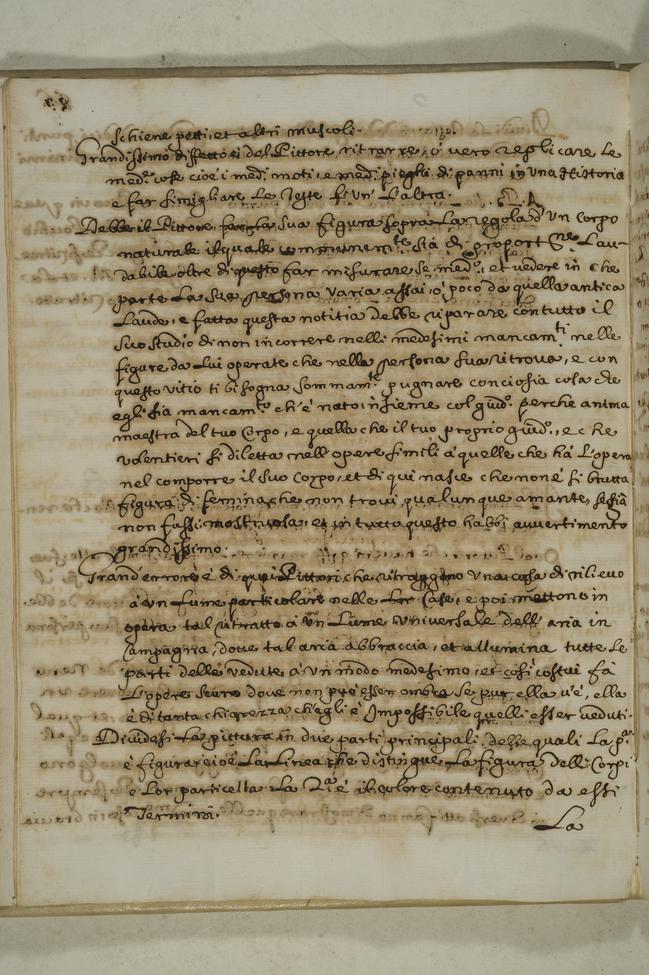 schiene petti, et altri muscoli.
Grandissimo diffetto è del Pittore ritrarre, ò vero replicare le
med.e cose cioè i med.i moti, e med.i piegbi di panni in una Historia
e far simigliare le Teste l'un' l'altra.
Debbe il Pittore far la sua figura sopra la regola d'un Corpo
naturale il quale communem.te sia di proport.ne lau-
dabile oltre di questo far misurare se med.o, et vedere in che
parte la sua persona varia assai, ò poco da quella antica
laude, e fatta questa notitia debbe riparare con tutto il
suo studio di non incorrere nelli medesimi mancam.ti nelle
figure da lui operate che nella persona sua ritrova, e con
questo vitio ti bisogna sommam.te pugnare conciosia cosa che
egli sia mancam.to ch'è nato insieme col giud.o perche anima
maestra del tuo Corpo, e quella che il tuo proprio giud.o, e che
volentieri si diletta nell'opere simili à quelle che hà l'opera
nel comporre il suo Corpo, et di qui nasce che non è si brutta
figura di femina che non trovi qualunque amante, se già
non fusse mostruosa, et in tutto questo habbi avvertimento
grandissimo.
Grand'errore è di quei Pittori che ritraggono una cosa di rilievo
à un lume particolare nelle lor Case, e poi mettono in
opera tal ritratto à un Lume universale dell'aria in
Campagna, dove tal aria abbraccia, et allumina tutte le
parti delle vedute à un modo medesimo, et così costui fà
l'opere scure dove non può esser ombra se pur ella v'è, ella
è di tanta chiarezza ch'egli è Impossibile quelli esser veduti.
Dividesi la pittura in due parti principali, delle quali la p.a
è figura cioè la Linea che distingue la figura delli Corpi
e lor particelle la 2.a è il colore contenuto da essi
Termini.
La